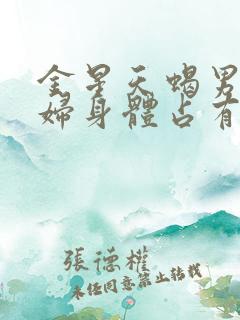 金星天蝎男
婦身體占有
張德權
未經同意禁止轉載